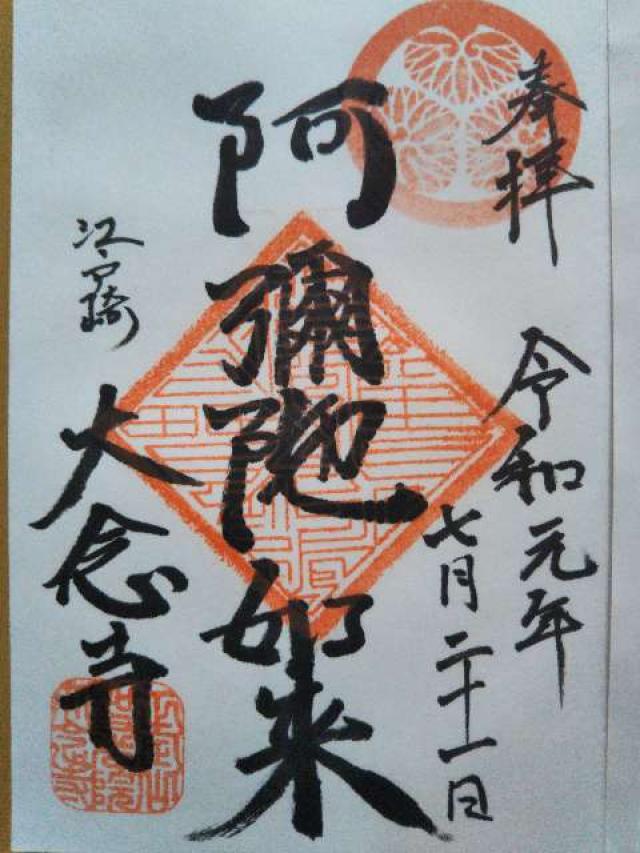 奉拝
令和元年
七月二十一日
阿彌陀如来
江戸崎
大念寺